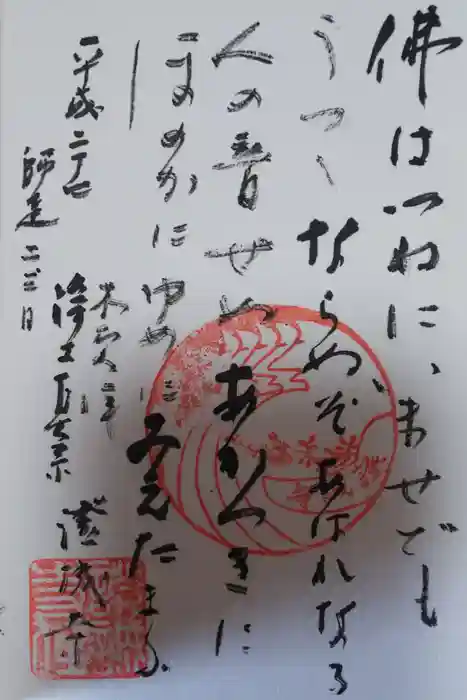 佛はつねに、ませども
うつゝならぬぞあはれなる
人の音せぬあかつきに
ほのかにゆめにみえたまふ
平成二十
師走二三日
浄土真宗
寺